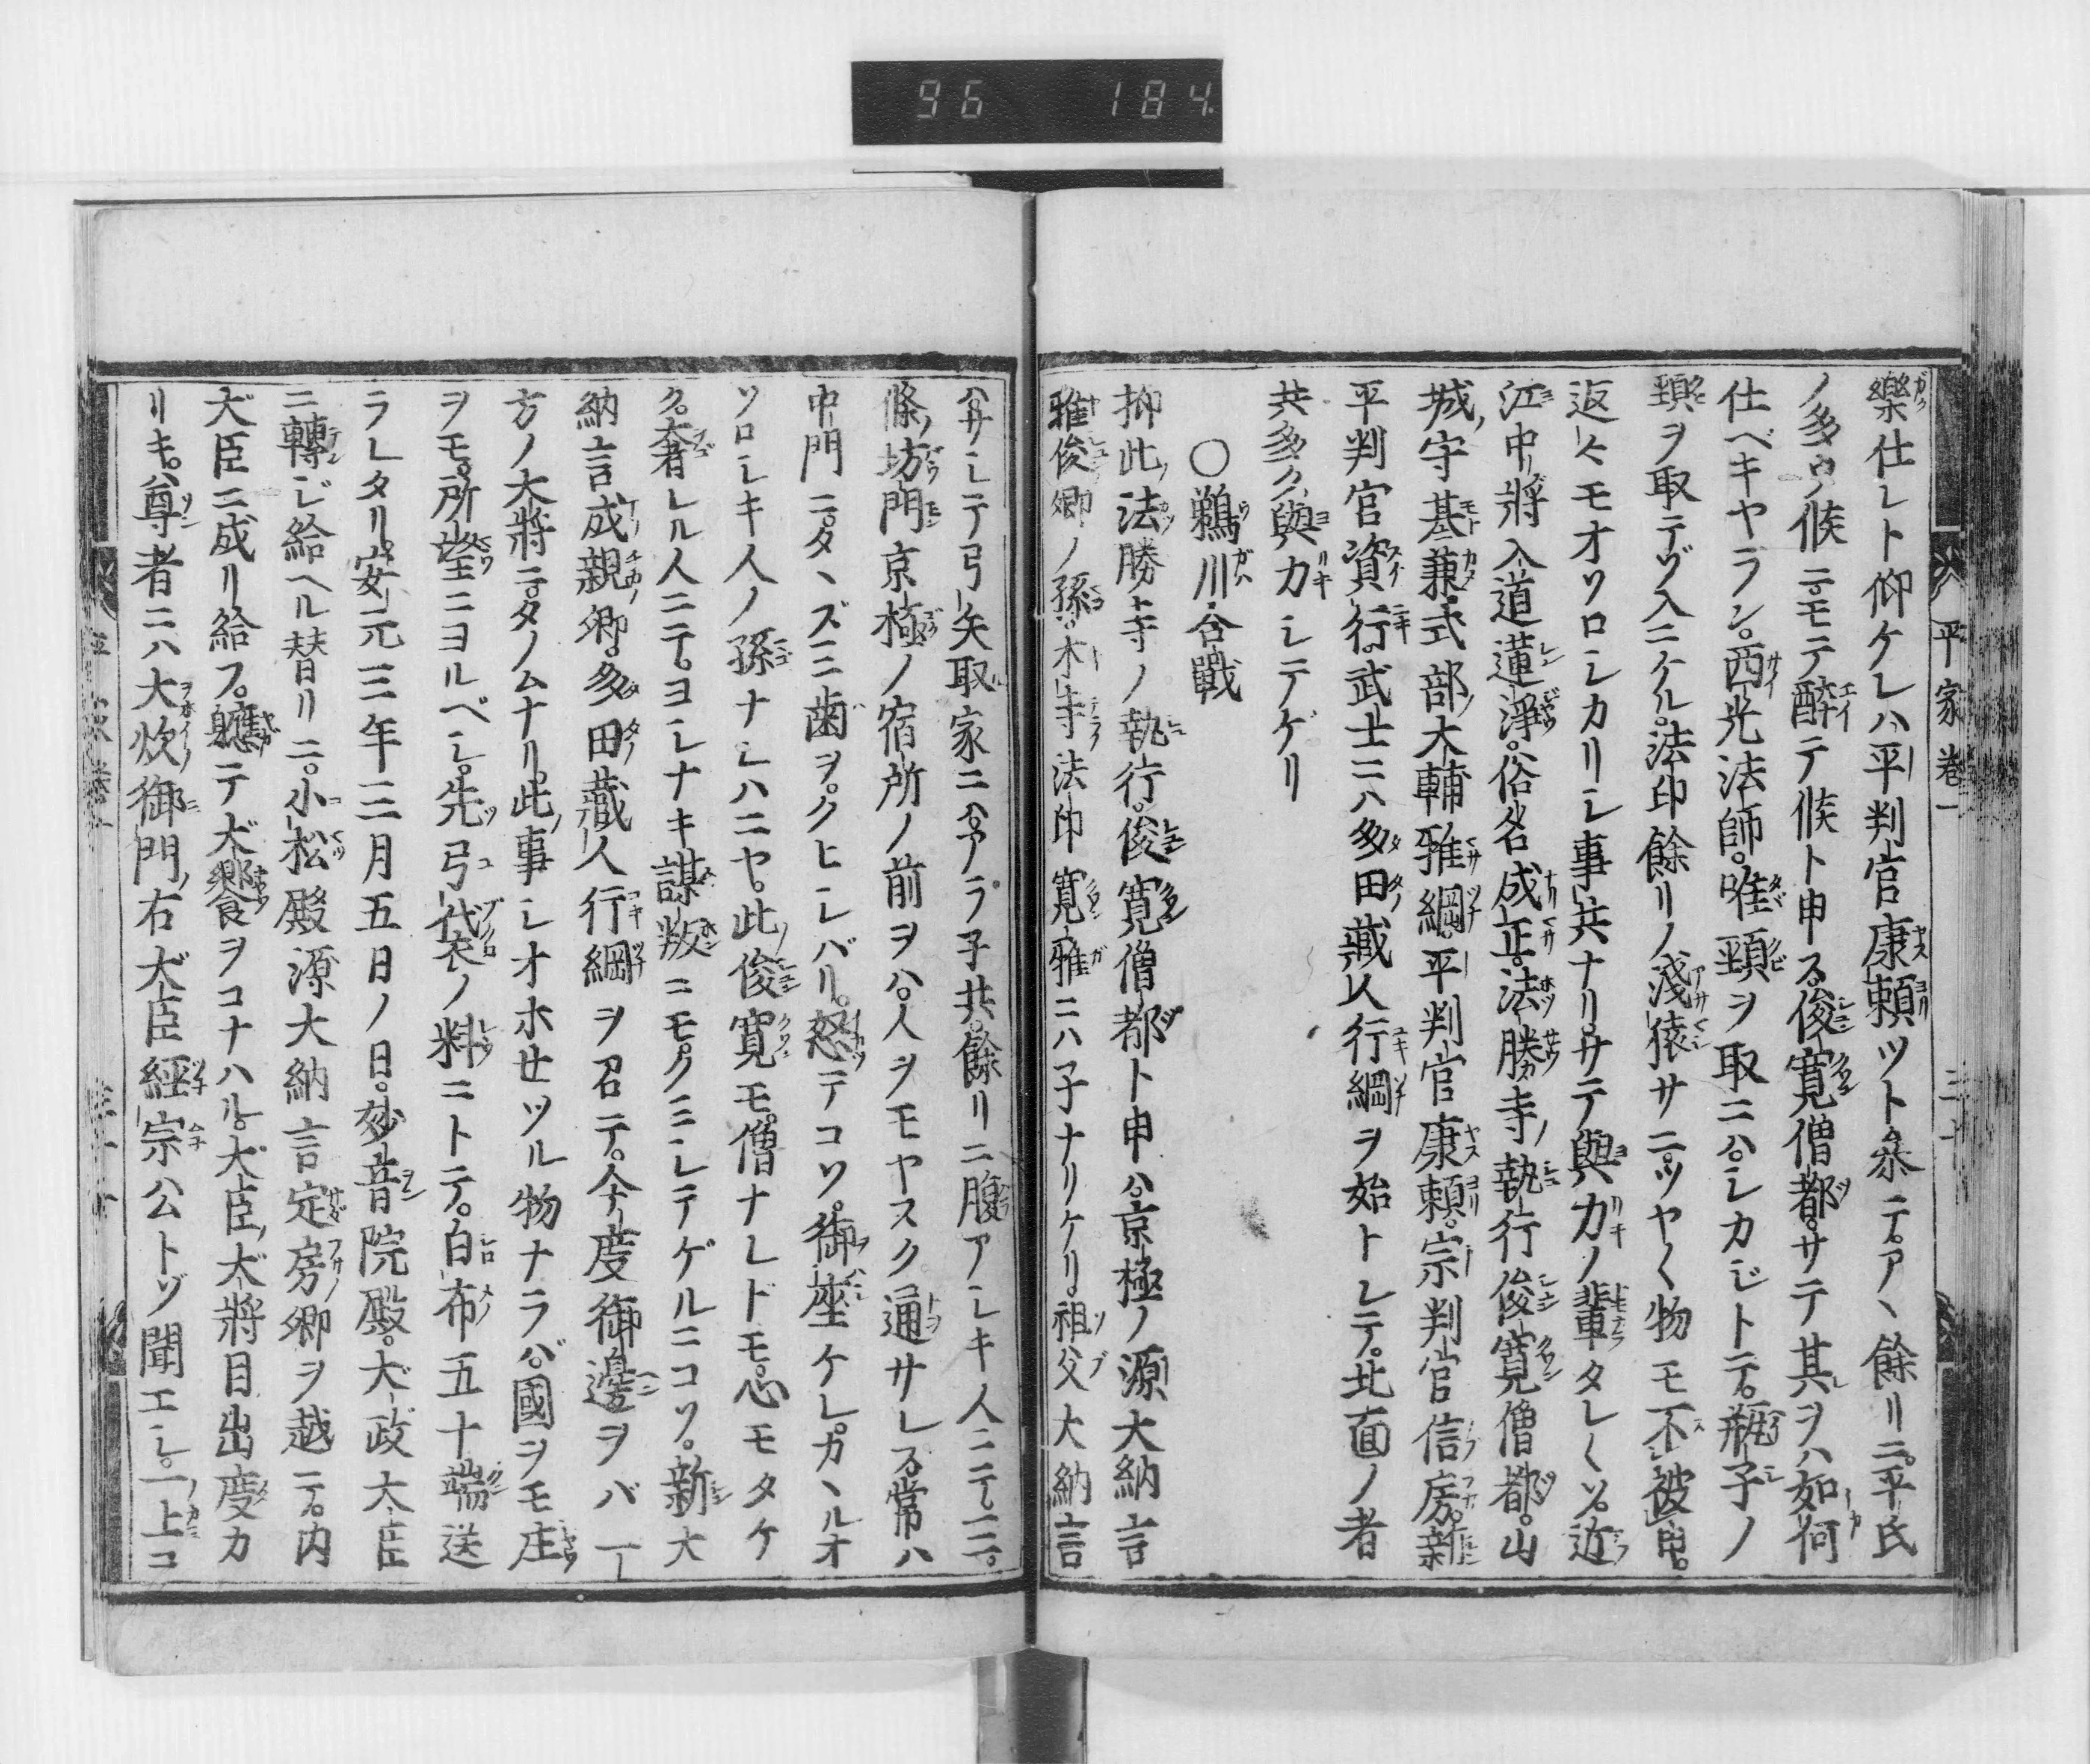 96 184
樂仕レト仰ケレハ平判官康頼ツト參テ。アヽ餘リニ。平氏
ノ多ウ候ニ。モテ醉テ候ト申ス。俊寛僧都。サテ其ヲハ如何
仕ベキヤラン。西光法師。唯頸ヲ取ニハ。シカジトテ。瓶子ノ
頸ヲ取テゾ入ニケル。法印餘リノ淺猿サニ。ツヤ〱物モ不被申。
返々モオソロシカリシ事共ナリ。サテ與力ノ輩タレ〱ソ。近
江中將入道蓮淨。俗名成正。法勝寺ノ執行俊寛僧都。山
城守基兼。式部大輔雅綱。平判官康頼。宗判官信房。新
平判官資行。武士ニハ多田藏人行綱ヲ始トシテ。北面ノ者
共多ク與力シテゲリ
〇鵜川合戰
抑此法勝寺ノ執行。俊寛僧都ト申ハ。京極ノ源大納言
雅俊卿ノ孫。木寺法印寛雅ニハ子ナリケリ。祖父大納言
ハ。サシテ弓矢取家ニハ。アラ子共。餘リニ腹アシキ人ニテ。三
條坊門京極ノ宿所ノ前ヲハ。人ヲモヤスク通サレズ。常ハ
中門ニ。タヽズミ歯ヲ。クヒシバリ。怒テコソ。御座ケレ。カヽルオ
ソロシキ人ノ孫ナレハニヤ。此俊寛モ。僧ナレドモ。心モタケ
ク。奢レル人ニテ。ヨシナキ謀叛ニモ。クミシテゲルニコソ。新大
納言成親卿。多田藏人行綱ヲ召テ。今度御邊ヲバ一
方ノ大將ニ。タノムナリ。此事シオホせツル物ナラバ。國ヲモ庄
ヲモ。所望ニヨルベシ。先弓袋ノ料ニトテ。白布五十端送
ラレタリ。安元三年三月五日ノ日。妙音院殿。大政大臣
ニ轉ジ給ヘル替リニ。小松殿源大納言定房卿ヲ越テ。内
大臣ニ成リ給フ。軈テ大饗ヲコナハル。大臣大將目出度カ
リキ。尊者ニハ大炊御門右大臣經宗公トゾ聞エシ。一上コ
平家巻一